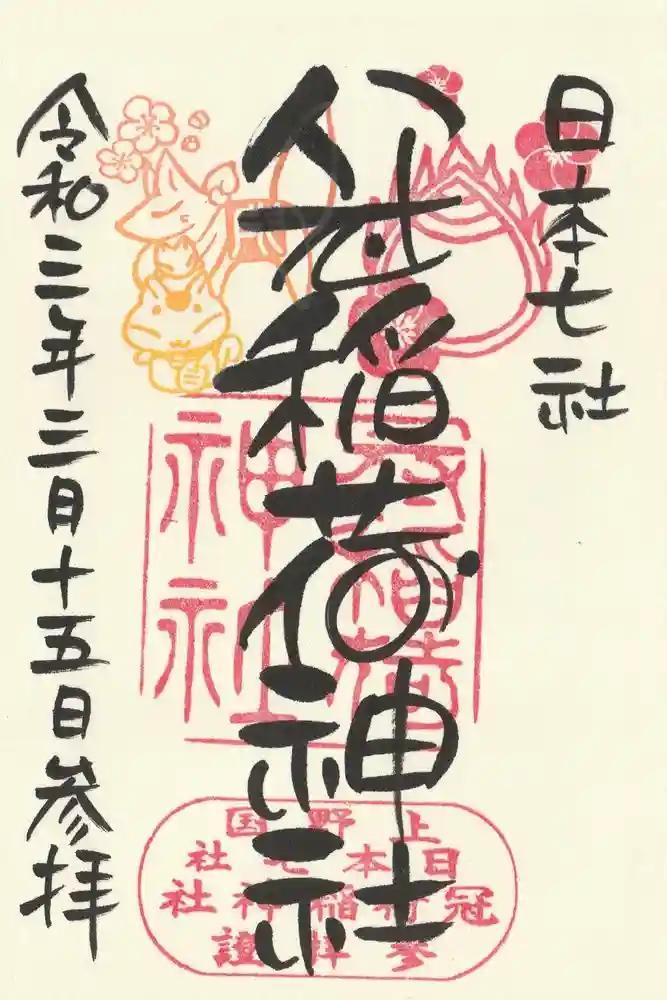 日本七社
冠稲荷神社
令和三年三月十五日参拝
冠稲荷
神社
上野国
日本七社
冠稲荷神社
参拝證